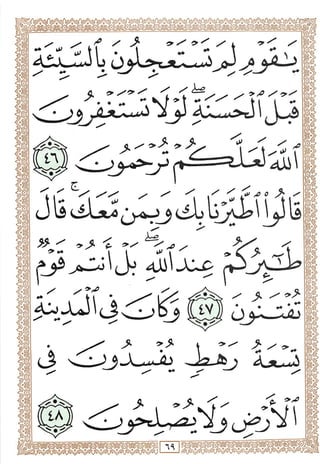 يَٰقَوْمِ لِمَ تَسْتَعْجِلُونَ بِٱلسَّيِّئَةِ
قَبْلَ ٱلْحَسَنَةِ ۖ لَوْلَا تَسْتَغْفِرُونَ
ٱللَّهَ لَعَلَّكُمْ تُرْحَمُونَ ٤٦
قَالُوا۟ ٱطَّيَّرْنَا بِكَ وَبِمَن مَّعَكَ ۚ قَالَ
طَٰٓئِرُكُمْ عِندَ ٱللَّهِ ۖ بَلْ أَنتُمْ قَوْمٌ
تُفْتَنُونَ ٤٧ وَكَانَ فِى ٱلْمَدِينَةِ
تِسْعَةُ رَهْطٍ يُفْسِدُونَ فِى
ٱلْأَرْضِ وَلَا يُصْلِحُونَ ٤٨
٦٩